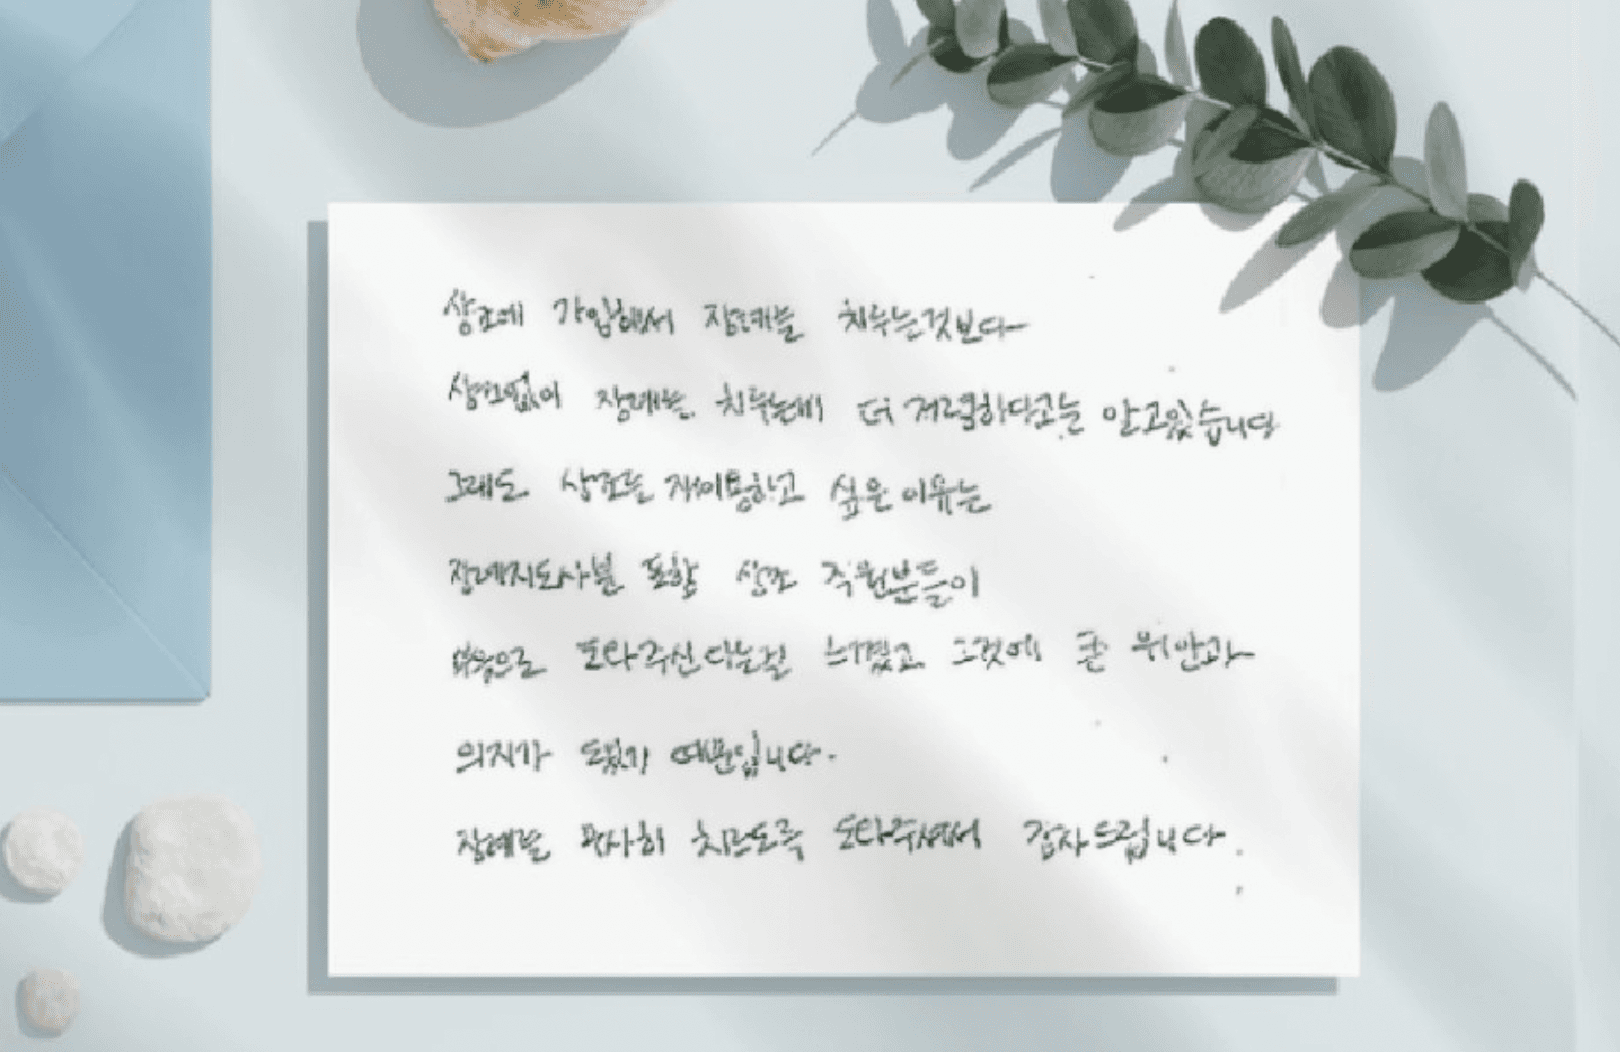 상조에 가입해서 장례를 치루는것보다
상조없이 장례를 치루는데 더 저렴하다고는 알고있습니다
그래도 상조를 재이용하고 싶은 이유는
장례지도사분 포함 상조 직원분들이
마음으로 도와주신다는걸 느꼈고 그것에 큰 위안과
의지가 됐기 때문입니다.
장례를 무사히 치르도록 도와주셔서 감사드립니다.